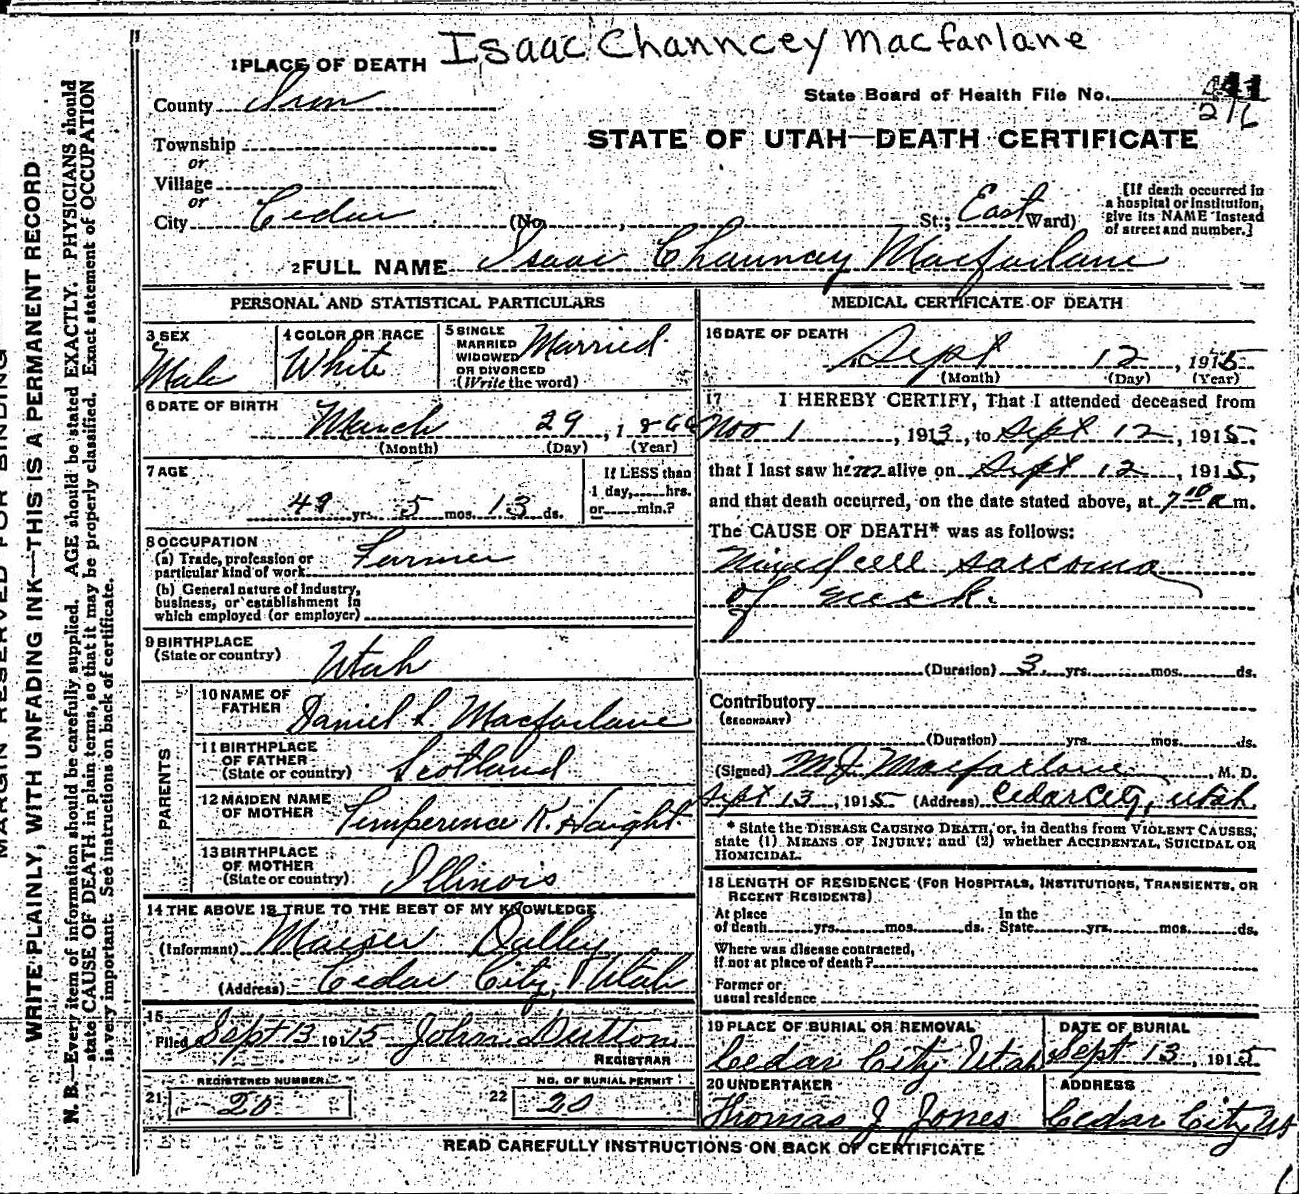 Isaac Channcey Macfarlane
1 PLACE OF DEATH
County Iron
State Board of Health File No. 216
Township
or
Village
or
City Cedar (No. , St.; East Ward)
STATE OF UTAH—DEATH CERTIFICATE
[If death occurred in
a hospital or institution,
give its NAME instead
of street and number.]
2 FULL NAME Isaac Chauncay Macfarlane
PERSONAL AND STATISTICAL PARTICULARS
3 SEX
Male
4 COLOR OR RACE
White
5 SINGLE
MARRIED
WIDOWED
OR DIVORCED
(Write the word)
Married
6 DATE OF BIRTH
March 29, 1866
(Month) (Day) (Year)
7 AGE
49 yrs. 5 mos. 13 ds.
If LESS than
1 day, hrs.
or min.?
8 OCCUPATION
(a) Trade, profession or
particular kind of work Farmer
(b) General nature of industry,
business, or establishment in
which employed (or employer)
9 BIRTHPLACE
(State or country)
Utah
PARENTS
10 NAME OF
FATHER Daniel S. Macfarlane
11 BIRTHPLACE
OF FATHER
(State or country) Scotland
12 MAIDEN NAME
OF MOTHER Temperence K. Haight
13 BIRTHPLACE
OF MOTHER
(State or country) Illinois
14 THE ABOVE IS TRUE TO THE BEST OF MY KNOWLEDGE
(Informant) Dalley
(Address) Cedar City, Utah
15
Filed Sept 13 1915 John Dutton
REGISTRAR
21 REGISTERED NUMBER
20
22 NO. OF BURIAL PERMIT
20
MEDICAL CERTIFICATE OF DEATH
16 DATE OF DEATH
Sept 12, 1915
(Month) (Day) (Year)
17 I HEREBY CERTIFY, That I attended deceased from
Nov 1, 1913, to Sept 12, 1915,
that I last saw him alive on Sept 12, 1915,
and that death occurred, on the date stated above, at 7 10 a m.
The CAUSE OF DEATH* was as follows:
cell sarcoma
of neck.
(Duration) 3 yrs. mos. ds.
Contributory
(SECONDARY)
(Duration) yrs. mos. ds.
(Signed) M J Macfarlane, M. D.
Sept 13, 1915 (Address) Cedar City, Utah
* State the DISEASE CAUSING DEATH, or, in deaths from VIOLENT CAUSES,
state (1) MEANS OF INJURY; and (2) whether ACCIDENTAL, SUICIDAL OR
HOMICIDAL.
18 LENGTH OF RESIDENCE (FOR HOSPITALS, INSTITUTIONS, TRANSIENTS, OR
RECENT RESIDENTS)
At place
of death yrs. mos. ds.
In the
State yrs. mos. ds.
Where was disease contracted,
if not at place of death?
Former or
usual residence
19 PLACE OF BURIAL OR REMOVAL
Cedar City Utah
DATE OF BURIAL
Sept 13, 1915
20 UNDERTAKER
Thomas J Jones
ADDRESS
Cedar City Ut
READ CAREFULLY INSTRUCTIONS ON BACK OF CERTIFICATE
MARGIN RESERVED FOR BINDING
WRITE PLAINLY, WITH UNFADING INK—THIS IS A PERMANENT RECORD
N. B.—Every item of information should be carefully supplied. AGE should be stated EXACTLY. PHYSICIANS should
state CAUSE OF DEATH in plain terms, so that it may be properly classified. Exact statement of OCCUPATION
is very important. See instructions on back of certificate.